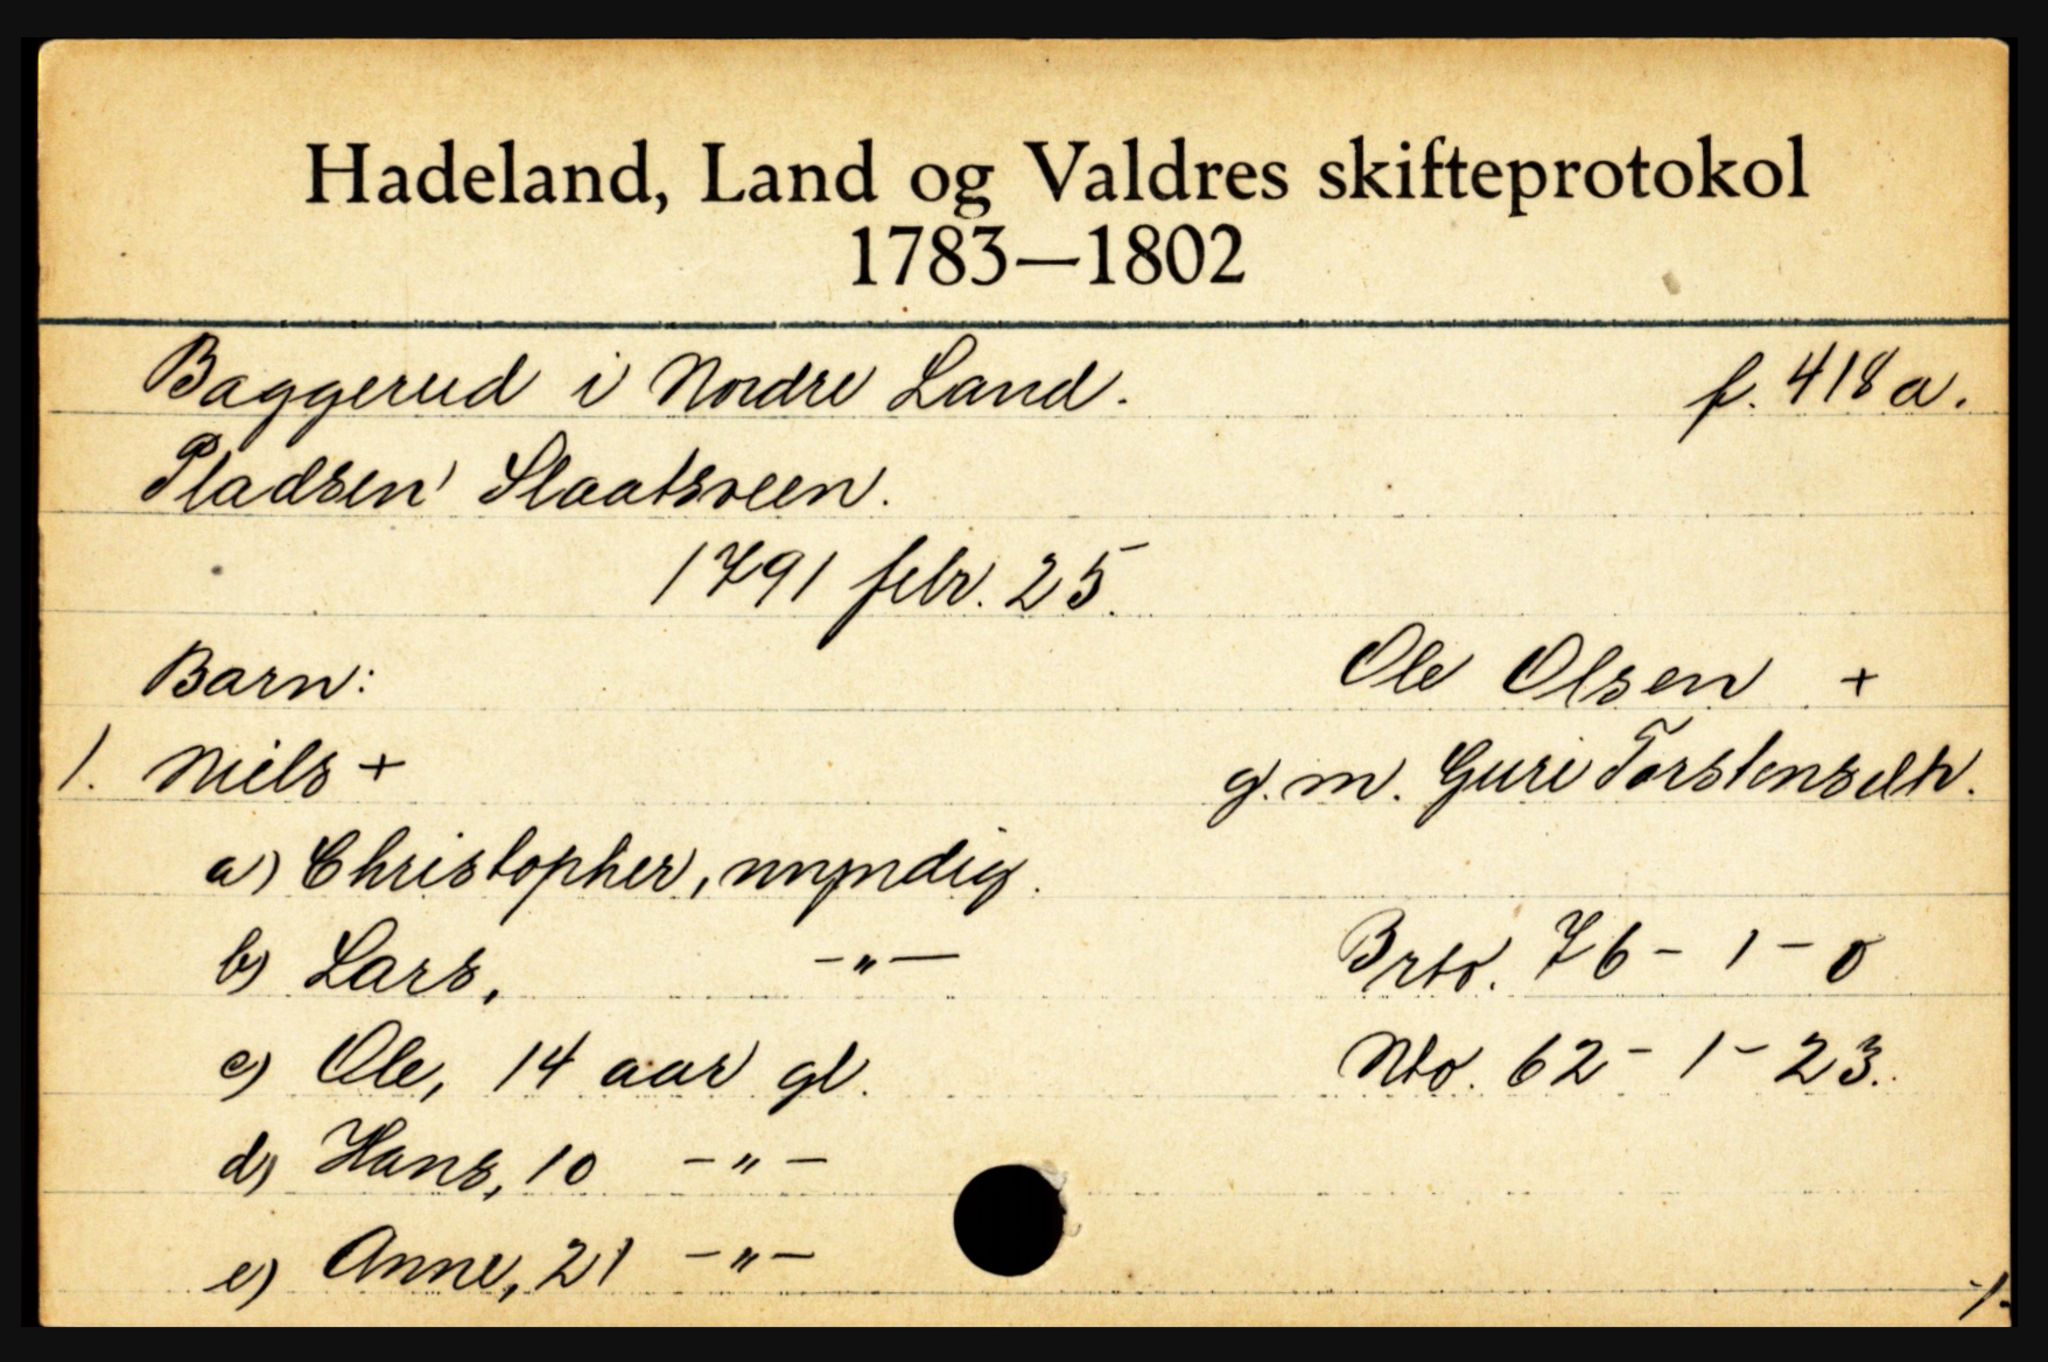 Hadeland, Land og Valdres skifteprotokol
1783—1802
Baggerud i Nordre Land. f. 418a.
Pladsen Slaatsveen.
1791 febr. 25.
Barn: Ole Olsen +
1. Niels + g. m. Guri Torstensdtr.
a) Christopher, myndig.
b) Lars, —"— Brto. 76 - 1 - 0
c) Ole, 14 aar gl. Nto. 62 - 1 - 23.
d) Hans, 10 —"—
e) Anne, 21 —"—
-/-